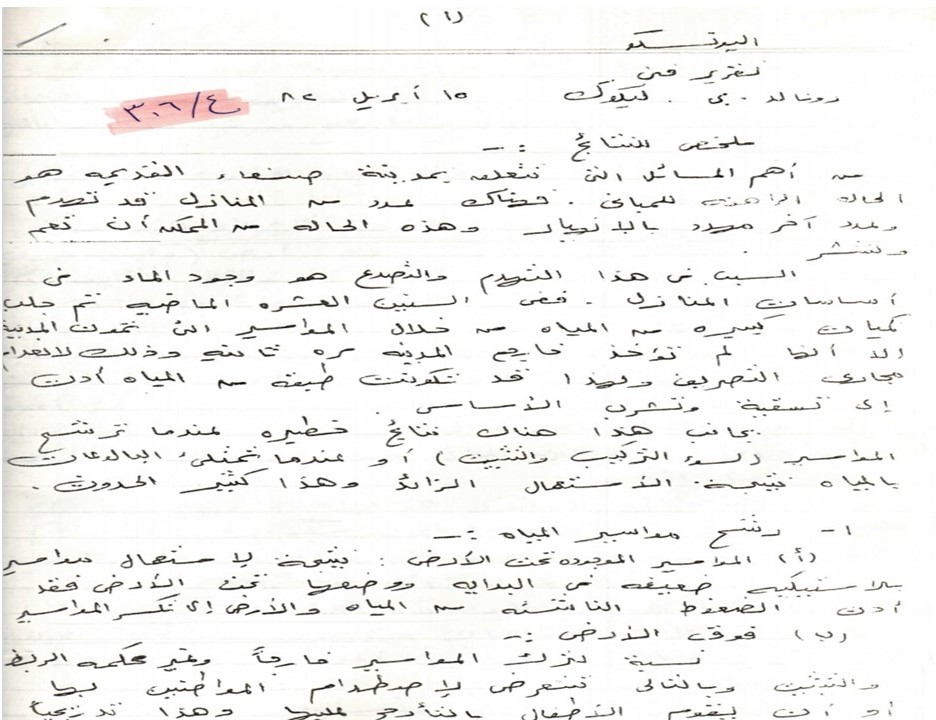 (١)
اليونسكو
تقرير فني
رونالد . بي . ليكوك ١٥ أبريل ٨٢ ٣٠٦/٤
ملخص للنتائج :-
من أهم المسائل التي تتعلق بمدينة صنعاء القديمه هو
الحاله الراهنه للمباني . فهناك عدد من المنازل قد تهدم
وعدد آخر مهدد بالانهيار وهذه الحاله من الممكن أن تعم
وتنتشر .
السبب في هذا التهدم والتصدع هو وجود الماء في
أساسات المنازل . ففي السنين العشره الماضيه تم جلب
كميات كبيره من المياه من خلال المواسير التي تمون المدينة
إلا أنها لم تؤخذ خارج المدينه مره ثانيه وذلك لانعدام
مجاري التصريف ولهذا قد تكونت طبقه من المياه أدت
إلى تسقية وتشرب الأساس .
بجانب هذا هناك نتائج خطيره عندما ترشح
المواسير (لسوء التركيب والتثبيت) أو عندما تمتلئ البالوعات
بالمياه نتيجة الأستعمال الزائد وهذا كثير الحدوث .
١- رشح مواسير المياه :-
(أ) المواسير الموجوده تحت الأرض : نتيجة لإستعمال مواسير
بلاستيكيه ضعيفه في البدايه ووضعها تحت الأرض فقد
أدت الضغوط الناشئه من المياه والأرض إلى تكسر المواسير
(ب) فوق الأرض :-
نسبة لترك المواسير خارجاً وغير محكمه الربط
والتثبيت وبالتالي تتعرض لإصطدام المواطنين بها
أو أن يقوم الأطفال بالتأرجح عليها وهذا تدريجياً